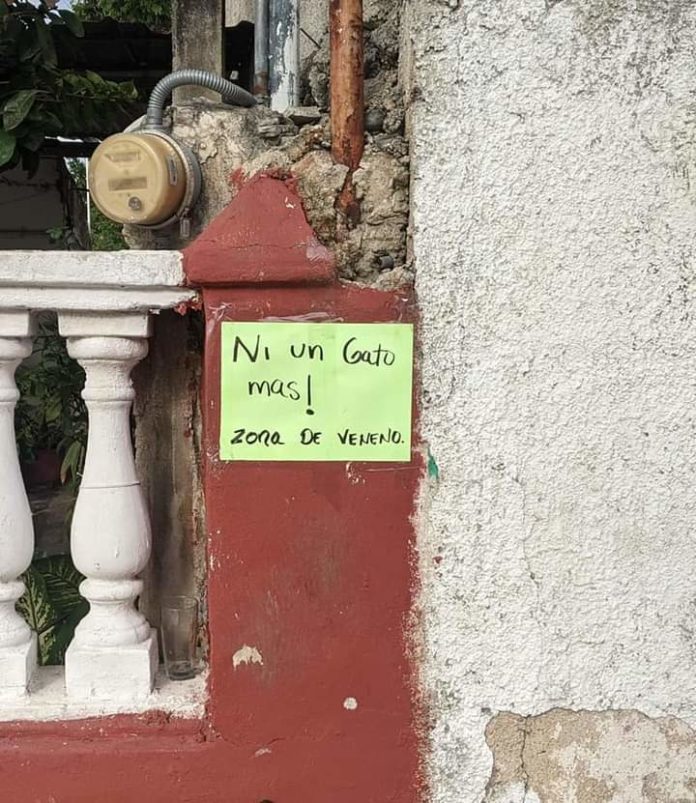 Ni un Gato
mas!
ZONa DE VENENO.